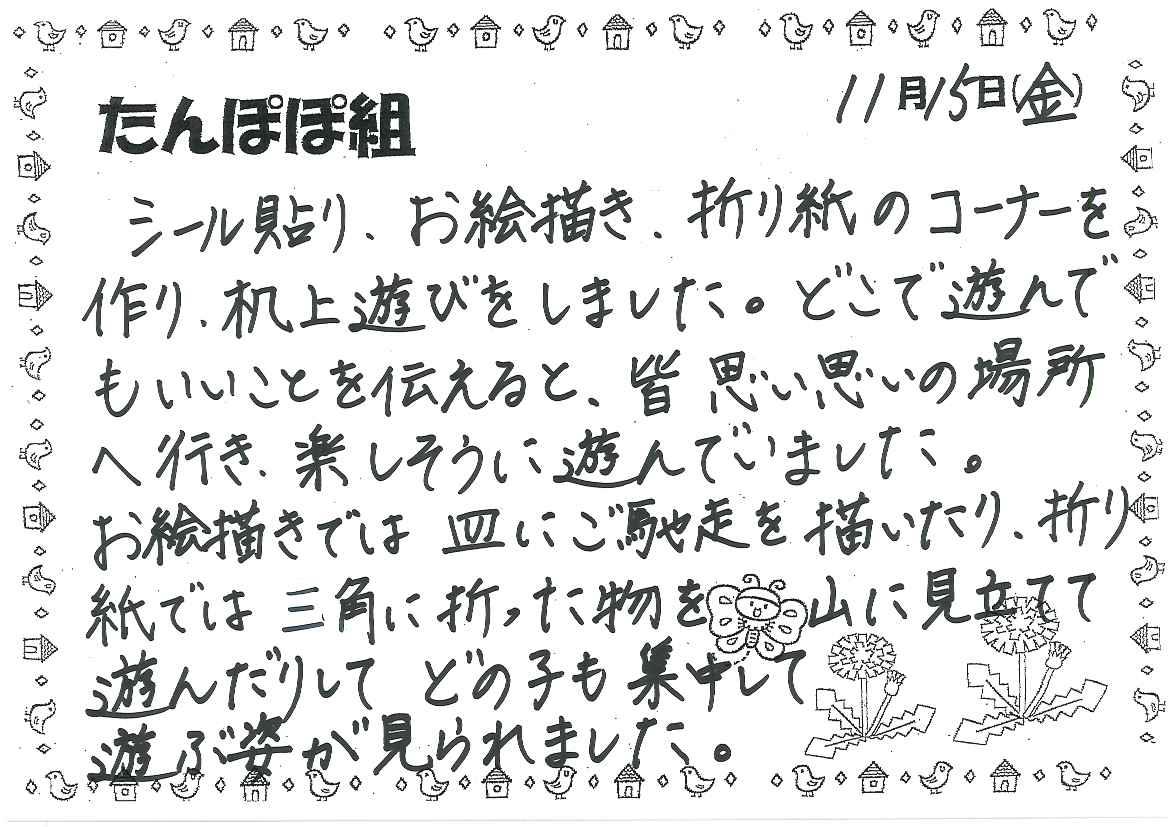 たんぽぽ組
11月15日(金)
シール貼り、お絵描き、折り紙のコーナーを
作り、机上遊びをしました。どこで遊んで
もいいことを伝えると、皆思い思いの場所
へ行き、楽しそうに遊んでいました。
お絵描きでは皿にご馳走を描いたり、折り
紙では三角に折った物を山に見立てて
遊んだりしてどの子も集中して
遊ぶ姿が見られました。